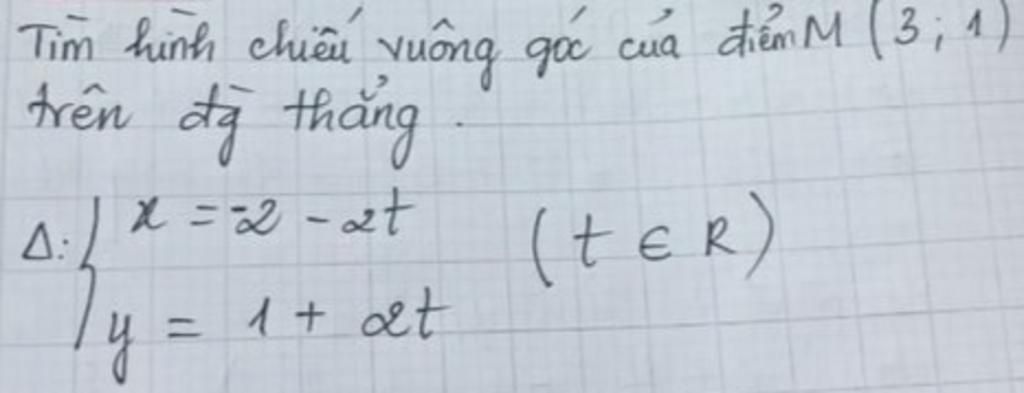 Tìm hình chiếu vuông góc của điểm M (3; 1)
trên đg̀ thẳng.
Δ: { x = -2 - 2t (t ∈ R)
y = 1 + 2t